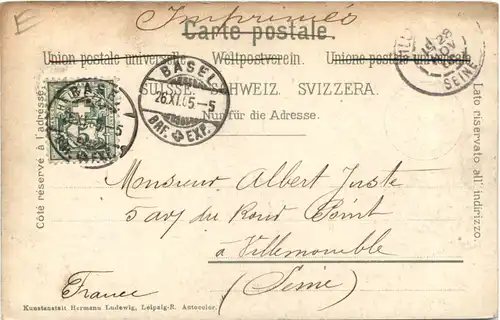 Imprimés
Carte postale.
Union postale universelle. Weltpostverein. Unione postale universale.
SUISSE. SCHWEIZ. SVIZZERA.
Nur für die Adresse.
Côté réservé à l'adresse.
Lato riservato all' indirizzo.
BASEL
26.XI.05-5
BRF. EXP.
BASEL
5
BRF. EXP.
28
NOV
SEINE
Monsieur Albert Juste
5 av du Rond Point
à Villemomble
(Seine)
France
Kunstanstalt Hermann Ludewig, Leipzig-R. Autocolor.
E